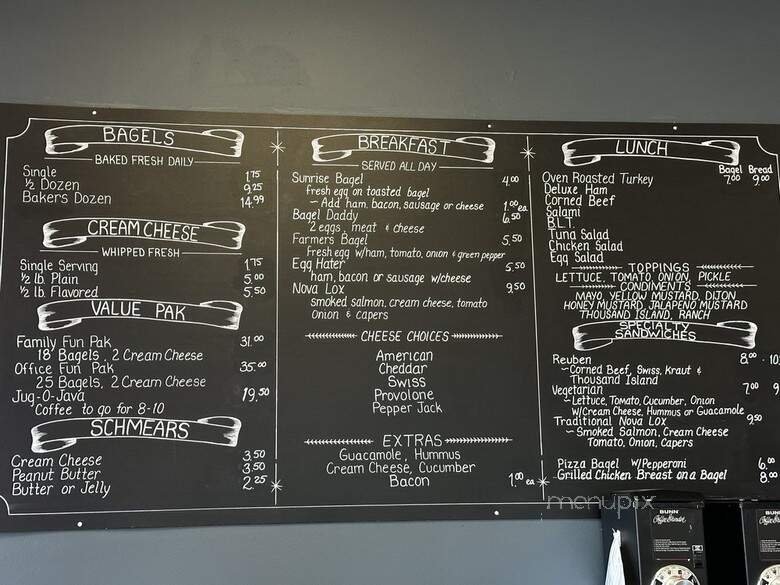 BAGELS
BAKED FRESH DAILY
Single 1.75
½ Dozen 9.25
Bakers Dozen 14.99
CREAM CHEESE
WHIPPED FRESH
Single Serving 1.75
½ lb. Plain 5.00
½ lb. Flavored 5.50
VALUE PAK
Family Fun Pak 31.00
18 Bagels, 2 Cream Cheese
Office Fun Pak 35.00
25 Bagels, 2 Cream Cheese
Jug-O-Java 19.50
Coffee to go for 8-10
SCHMEARS
Cream Cheese 3.50
Peanut Butter 3.50
Butter or Jelly 2.25
BREAKFAST
SERVED ALL DAY
Sunrise Bagel 4.00
Fresh egg on toasted bagel
~ Add ham, bacon, sausage or cheese 1.00 ea
Bagel Daddy 6.50
2 eggs, meat & cheese
Farmers Bagel 5.50
Fresh egg w/ham, tomato, onion & green pepper
Egg Hater 5.50
ham, bacon or sausage w/cheese
Nova Lox 9.50
smoked salmon, cream cheese, tomato
Onion & capers
CHEESE CHOICES
American
Cheddar
Swiss
Provolone
Pepper Jack
EXTRAS
Guacamole, Hummus
Cream Cheese, Cucumber
Bacon 1.00 ea
LUNCH
Bagel Bread
Oven Roasted Turkey 7.00 9.00
Deluxe Ham
Corned Beef
Salami
B.L.T.
Tuna Salad
Chicken Salad
Egg Salad
TOPPINGS
LETTUCE, TOMATO, ONION, PICKLE
CONDIMENTS
MAYO, YELLOW MUSTARD, DIJON
HONEY MUSTARD, JALAPENO MUSTARD
THOUSAND ISLAND, RANCH
SPECIALTY
SANDWICHES
Reuben 8.00 · 10
~Corned Beef, Swiss, Kraut &
Thousand Island
Vegetarian 7.00 9
~Lettuce, Tomato, Cucumber, Onion
w/Cream Cheese, Hummus or Guacamole
Traditional Nova Lox 9.50
~ Smoked Salmon, Cream Cheese
Tomato, Onion, Capers
Pizza Bagel w/Pepperoni 6.00
Grilled Chicken Breast on a Bagel 8.00
menupix
BUNN
BUNN